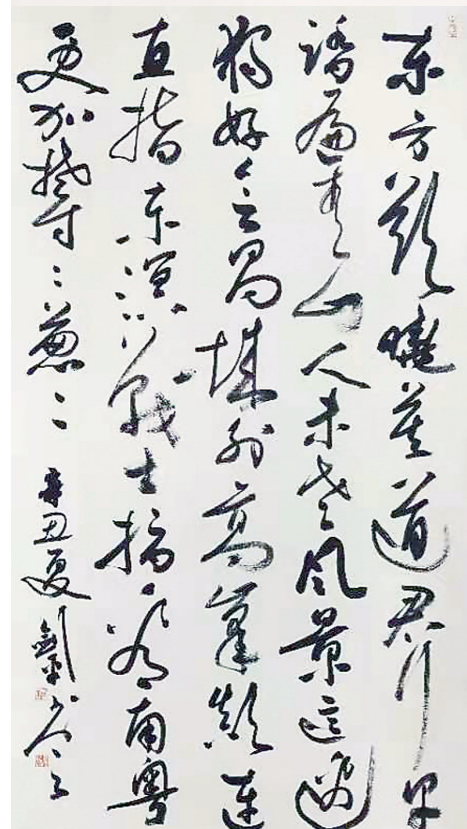 东方欲曉莫道君行早
踏遍青山人未老风景這邊
独好会昌城外高峯颠连
直指东溟战士指看南粤
更加郁々葱々 辛丑夏